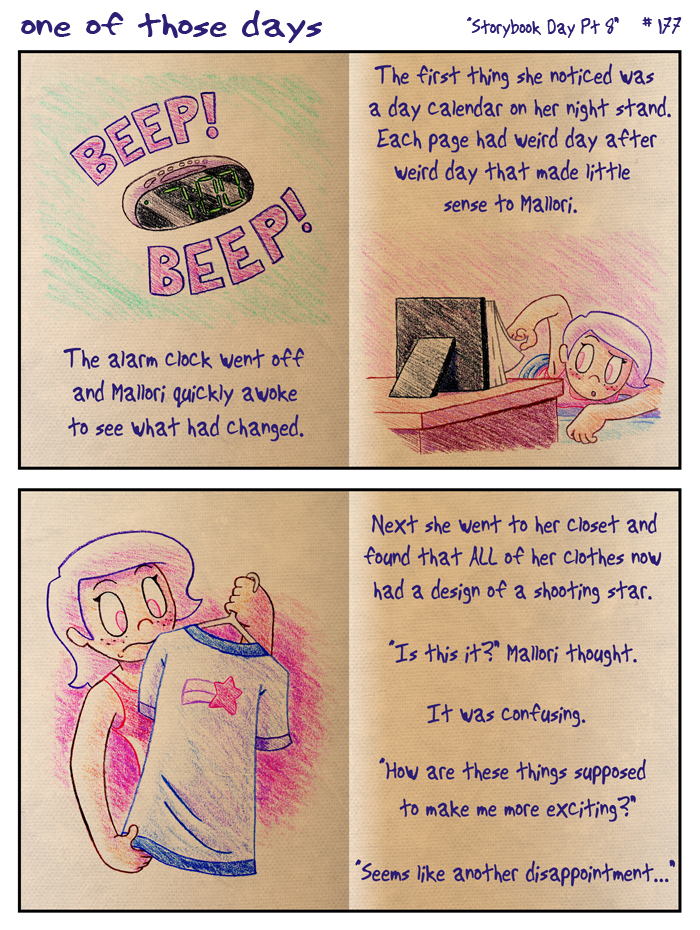 one of those days
"Storybook Day Pt 8" #177
BEEP!
7:00
BEEP!
The alarm clock went off
and Mallori quickly awoke
to see what had changed.
The first thing she noticed was
a day calendar on her night stand.
Each page had weird day after
weird day that made little
sense to Mallori.
Next she went to her closet and
found that ALL of her clothes now
had a design of a shooting star.
"Is this it?" Mallori thought.
It was confusing.
"How are these things supposed
to make me more exciting?"
"Seems like another disappointment..."